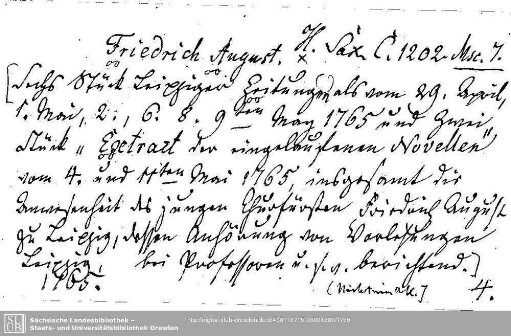 Friedrich August. H. Sax. C. 1202. Msc. 7.
[Sechs Stück Leipziger Zeitungen als vom 29. April,
1. Mai, 2., 6. 8. 9ten May 1765 und zwei
Stück „Extract der eingelaufenen Novellen"
vom 4. und 11ten Mai 1765, insgesamt die
Anwesenheit des jungen Churfürsten Friedrich August
zu Leipzig, dessen Anhörung von Vorlesungen
bei Professoren u. s. w. berichtend.]
Leipzig,
1765.
4.
Sächsische Landesbibliothek –
Staats- und Universitätsbibliothek Dresden